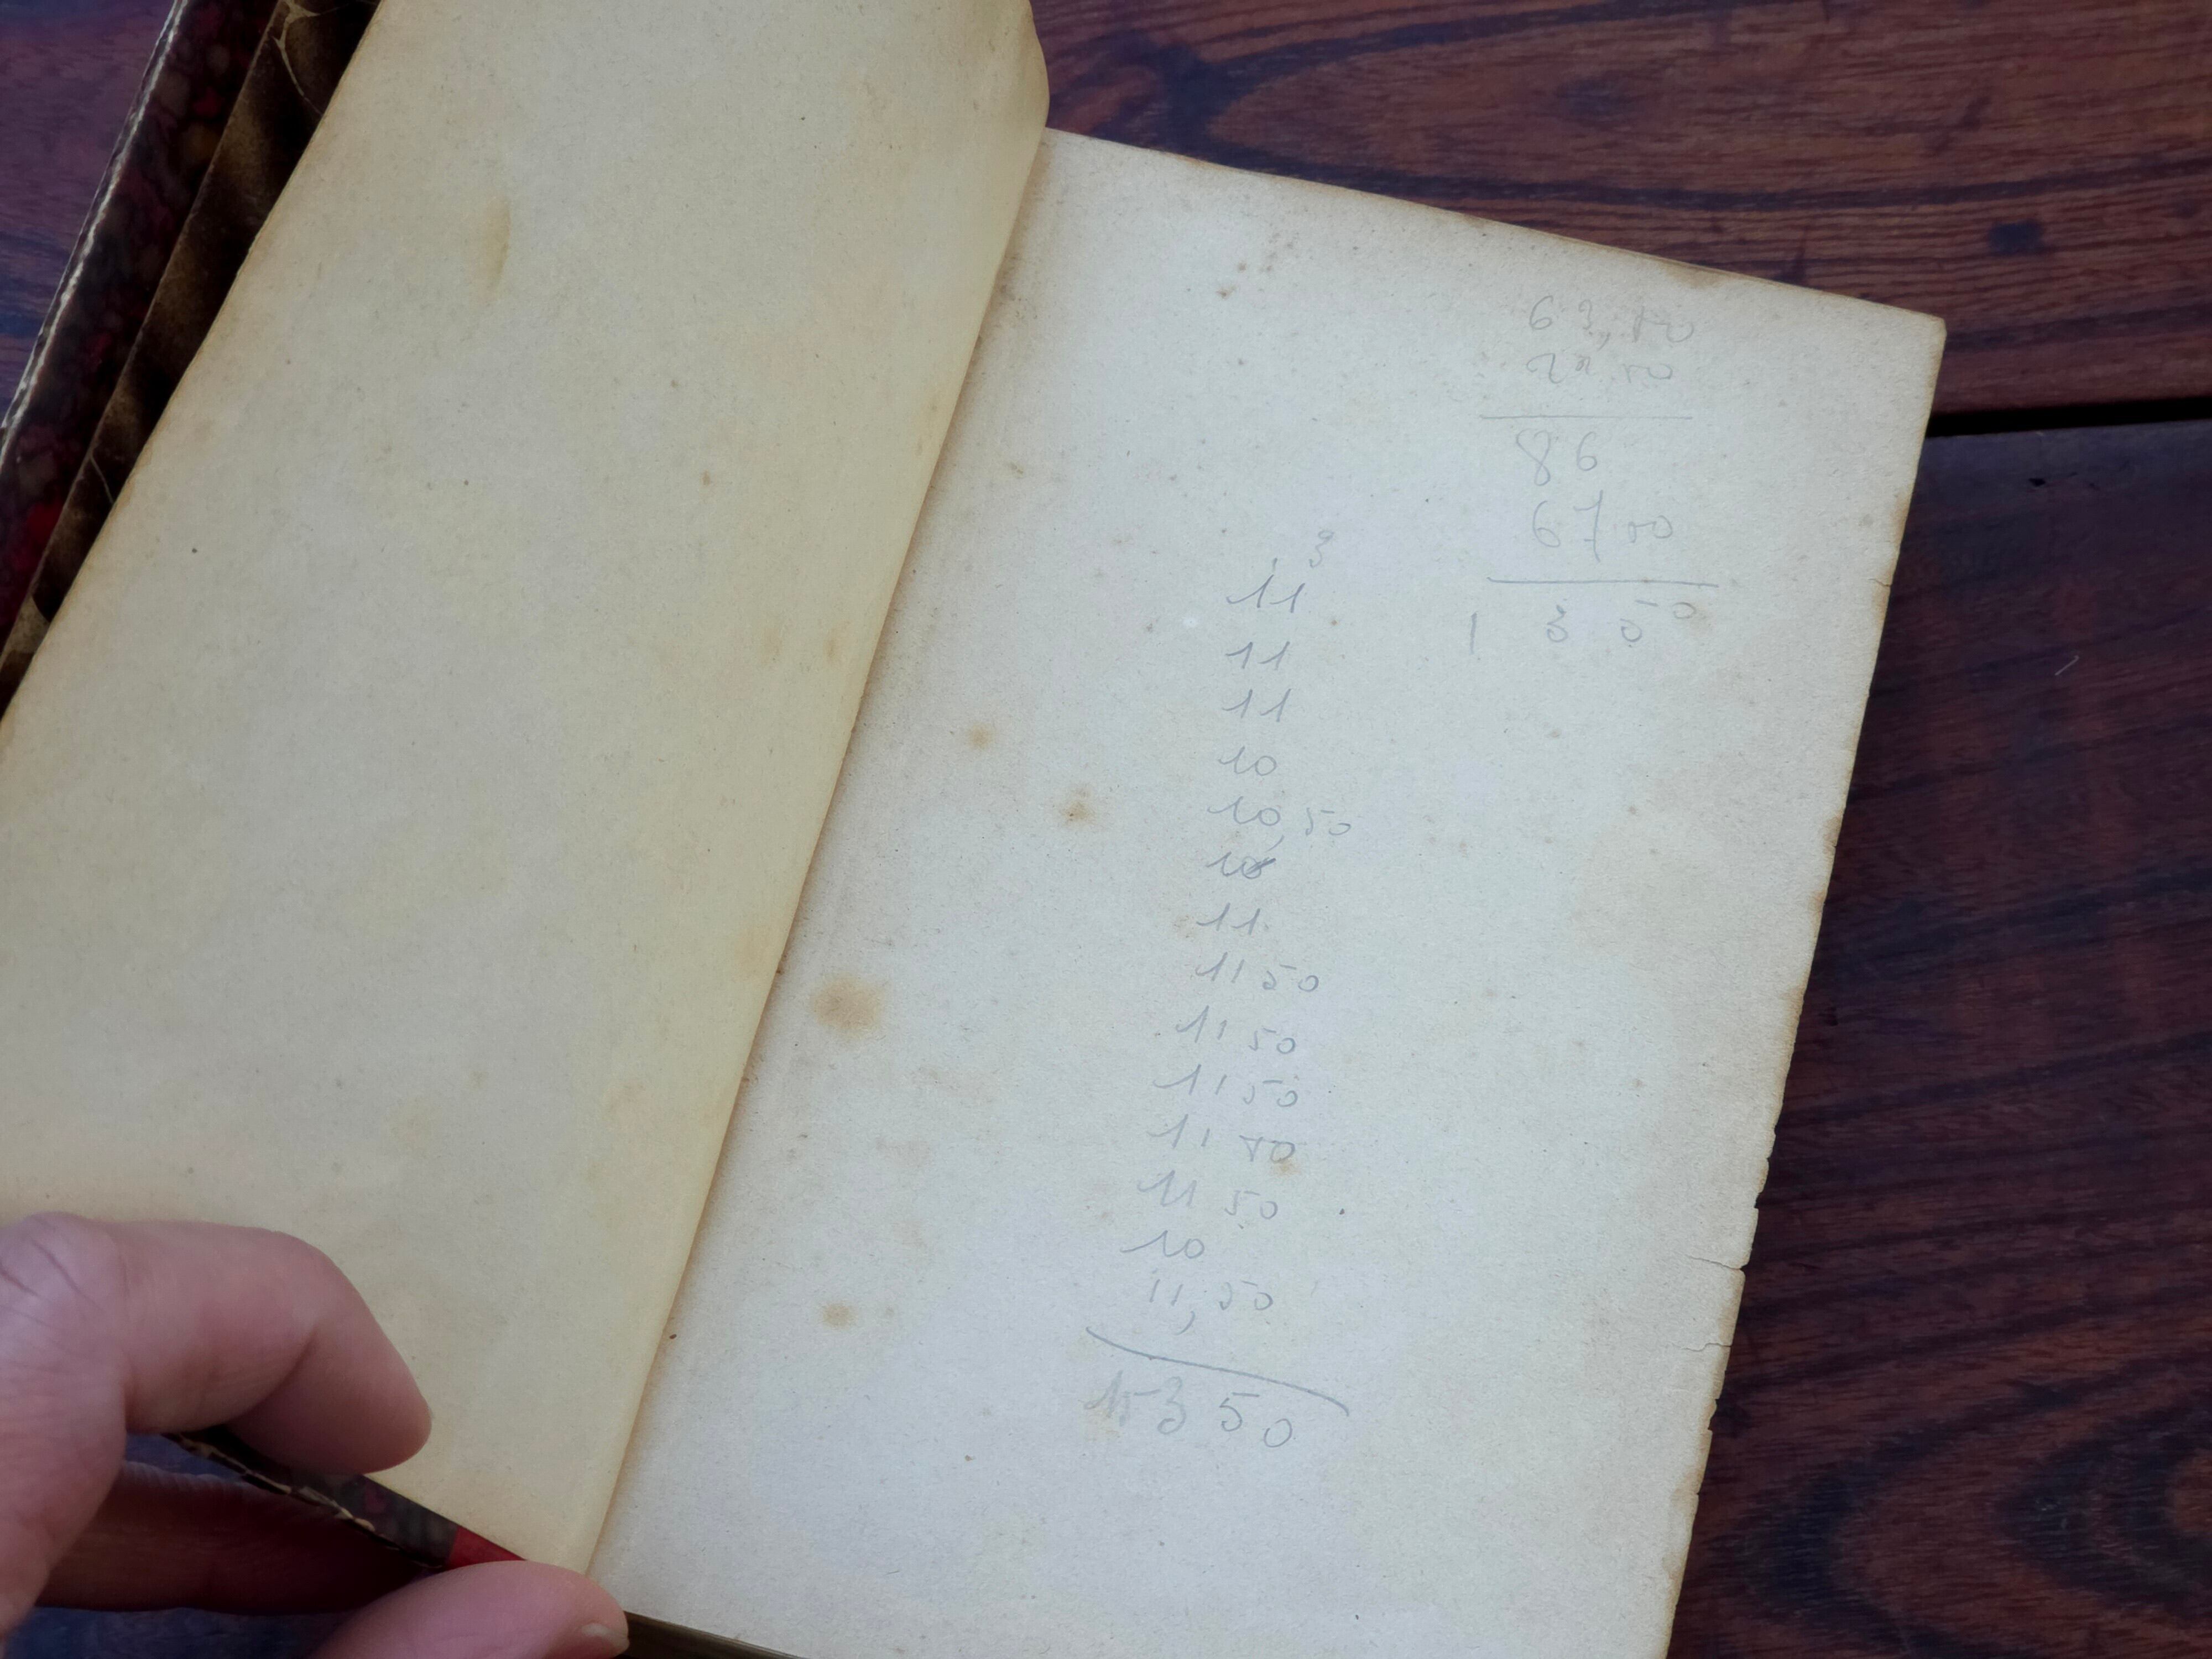 3
11
11
11
10
10,50
10
11
11 50
11 50
11 50
11 50
11 50
10
11,50
15350
63,50
22,50
86
67 50
1 3 5 50